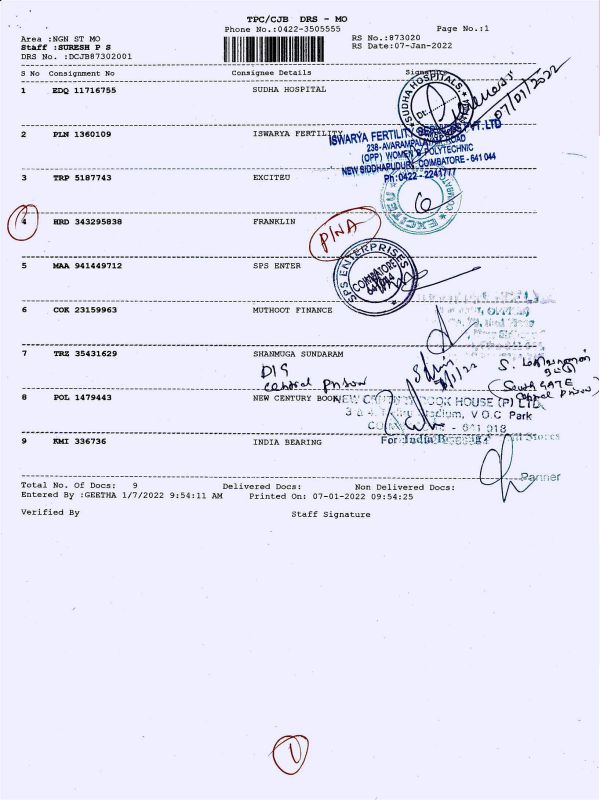 TPC/CJB DRS - MO
Phone No.:0422-3505555
Page No.:1
Area :NGN ST MO
RS No.:873020
Staff :SURESH P S
RS Date:07-Jan-2022
DRS No. :DCJB87302001
S No Consignment No Consignee Details Signature
1 EDQ 11716755 SUDHA HOSPITAL
SUDHA HOSPITALS.
Dt:
07/01/2022
2 PLN 1360109 ISWARYA FERTILITY
ISWARYA FERTILITY SERVICES PVT. LTD
236-AVARAMPALAYAM ROAD
(OPP) WOMEN'S POLYTECHNIC
NEW SIDDHAPUDUR, COIMBATORE - 641 044
Ph:0422 - 2241777
3 TRP 5187743 EXCITEU
EXCITEU
4 HRD 343295838 FRANKLIN
P/NA
5 MAA 941449712 SPS ENTER
SPS ENTERPRISES
COIMBATORE
6 COK 23159963 MUTHOOT FINANCE
7 TRZ 35431629 SHANMUGA SUNDARAM
DIG
central prison
(South GATE
8 POL 1479443 NEW CENTURY BOOK
NEW CENTURY BOOK HOUSE (P) LTD.
Stadium, V O C Park
- 641 018
9 KMI 336736 INDIA BEARING
For India Bearing
Total No. Of Docs: 9 Delivered Docs: Non Delivered Docs:
Entered By :GEETHA 1/7/2022 9:54:11 AM Printed On: 07-01-2022 09:54:25
Verified By Staff Signature
1